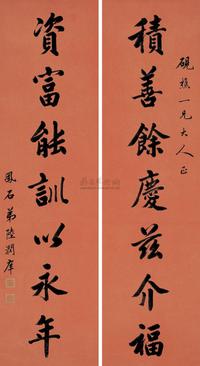 硯樵一兄大人正
積善餘慶茲介福
資富能訓以永年
鳳石弟陸潤庠